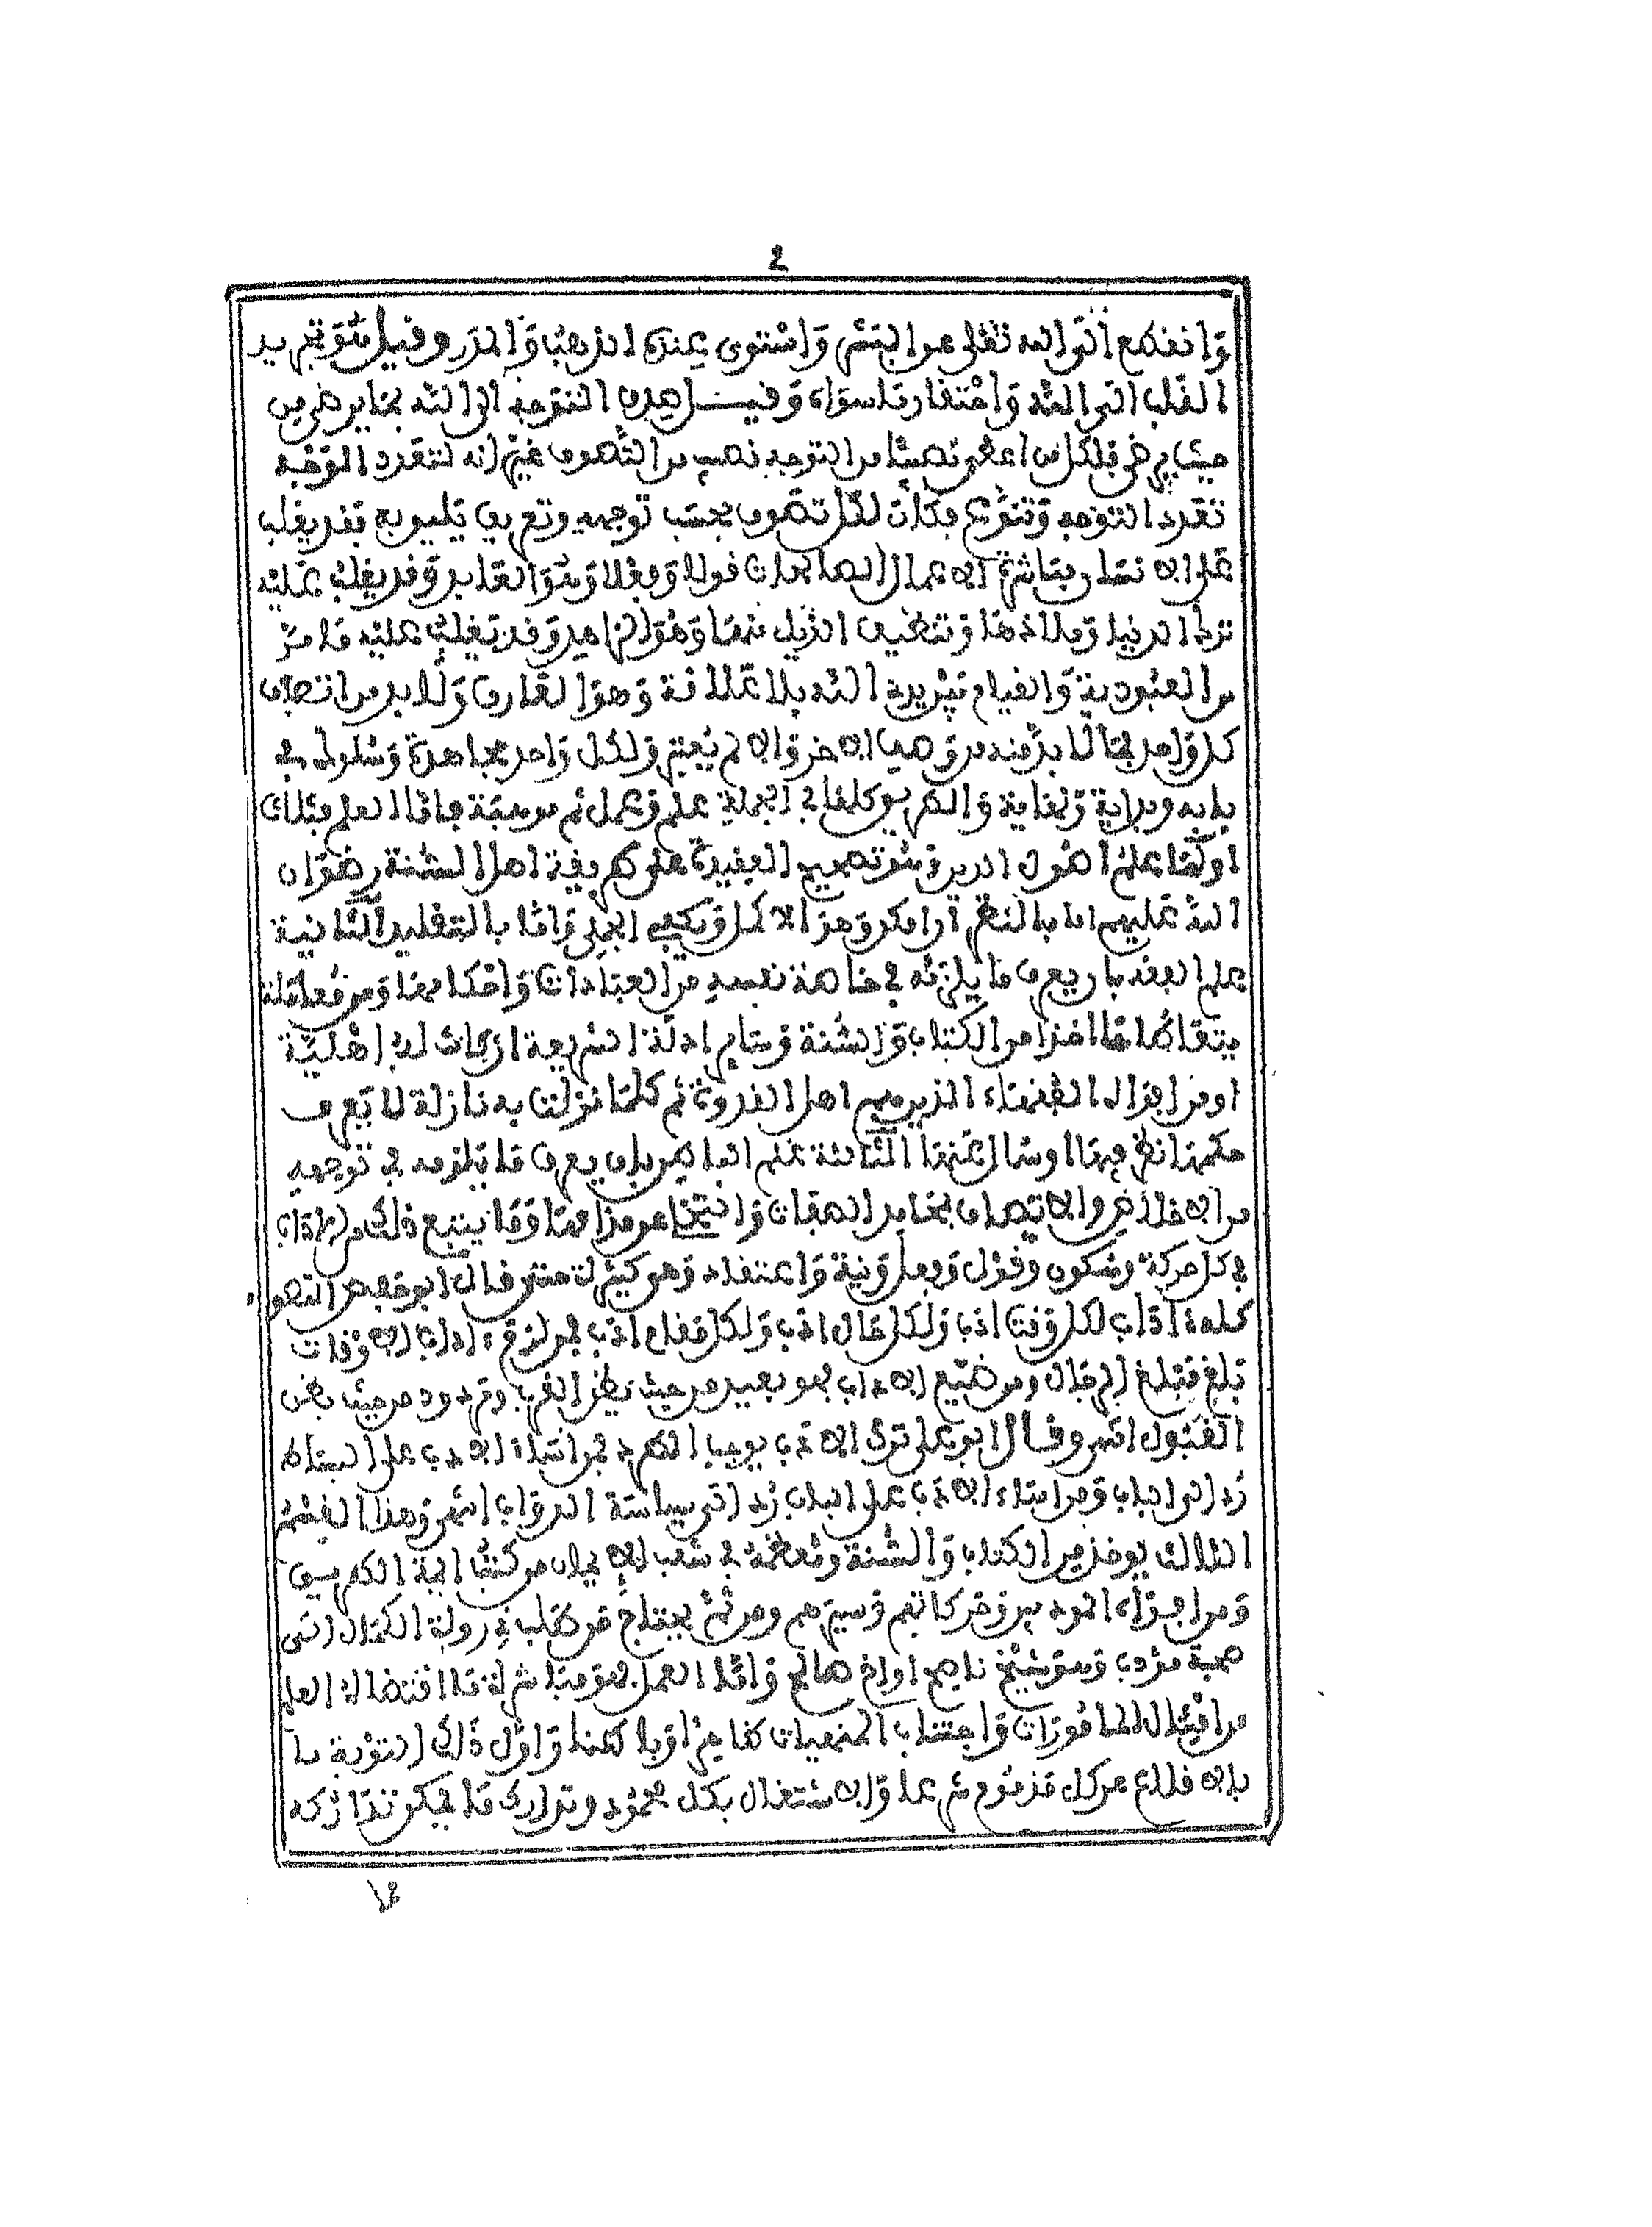 2
وانقطع الى الله تعلى عن البشر واستوى عنده الذهب والمدر وقيل هو تجريد
القلب الى الله واحتقار ما سواه وقيل صدق التوجه الى الله بما يرضى من
حيث يرضى فلكل من اعطى نصيبا من التوجه نصيب من التصوف غير انه لتعدد الوجه
تعدد التوجه وتنوع فكان لكل تصوف بحسب توجهه وتعريف يليق به فقد يغلب
على الانسان مباشرة الاعمال الصالحات قولا وفعلا وهو العابد وقد يغلب عليه
ترك الدنيا وملاذها وتنظيف الذيل منها وهو الزاهد وقد تغلب عليه
من العبودية والقيام بين يدي الله بلا علاقة وهو العارف ولا بد من اتصاف
كل واحد بما لا بد منه من وصف الاخر والا لم يعتبر ولكل واحد مجاهدة وسلوك في
بابه وبداية ونهاية والطريق كلها في الجملة علم وعمل ثم موهبة فاما العلم فثلاث
اولها علم اصول الدين وهو تصحيح العقيدة على طريقة اهل السنة رضوان
الله عليهم اما بالنظر ان امكن وهو الاكمل ويكفي الجملي واما بالتقليد الثانية
علم الفقه بان يعرف ما يلزمه في خاصة نفسه من العبادات واحكامها ومن معاملة
يتعاطاها اخذا من الكتاب والسنة وسائر ادلة الشريعة ان كانت له اهلية
او من اقوال الفقهاء الذين هم اهل القدوة ثم كلما نزلت به نازلة لا يعرف
حكمها نظر فيها او سال عنها الثالثة علم الباطن بان يعرف ما يلزمه في توجهه
من الاخلاص والاتصاف بمحامد الصفات والتخلي عن مذامها وما يتبع ذلك من الاداب
في كل حركة وسكون وقول وفعل ونية واعتقاد وهو كثير لا حصر قال ابو حفص التصوف
كله اداب لكل وقت ادب ولكل حال ادب ولكل مقام ادب فمن لزم اداب الاوقات
بلغ مبلغ الرجال ومن ضيع الاداب فهو بعيد من حيث يظن القرب ومردود من حيث يظن
القبول انتهى وقال ابو علي ترك الادب يوجب الطرد فمن اساء الادب على البساط
رد الى الباب ومن اساء الادب على الباب رد الى سياسة الدواب انتهى وهذا القسم
الثالث يوخذ من الكتاب والسنة ومعظمه في شعب الايمان من كتب ايمة الطريق
ومن اجزاء وحركاتهم وسيرهم ومن ثم يحتاج من طلب في دولة الكمال الى
صحبة مؤدب وهو شيخ ناصح او اخ صالح واما العمل فهو مباشرة ما اقتضاه العلم
من امتثال المامورات واجتناب المنهيات ظاهرا وباطنا واول ذلك التوبة
بالاقلاع عن كل مذموم شرعا والاشتغال بكل محمود وتدارك ما يمكن تداركه